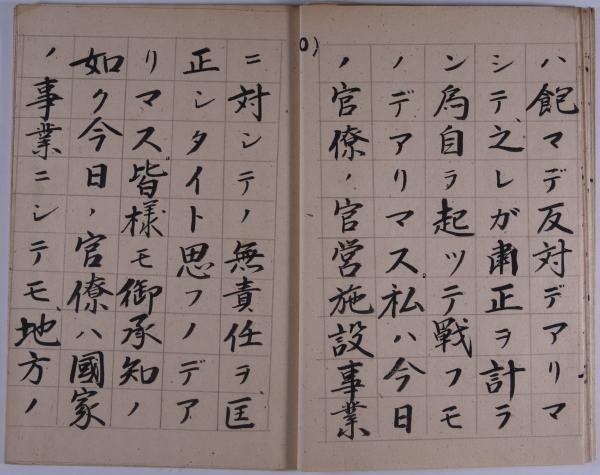 ハ飽マデ反対デアリマ
シテ、之レガ粛正ヲ計ラ
ン為自ラ起ツテ戦フモ
ノデアリマス。私ハ今日
ノ官僚ノ官営施設事業
ニ対シテノ無責任ヲ匡
正シタイト思フノデア
リマス。皆様モ御承知ノ
如ク今日ノ官僚ハ國家
ノ事業ニシテモ、地方ノ